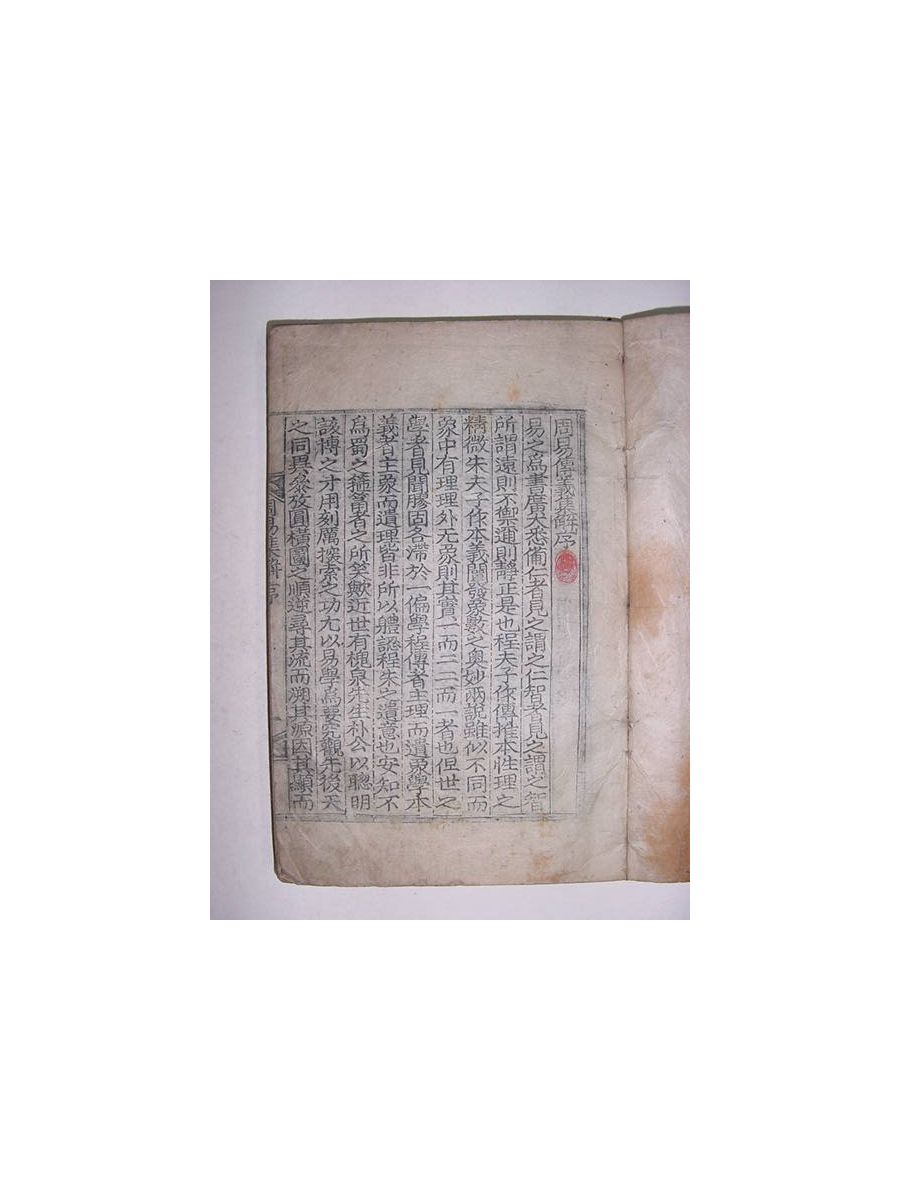 周易傳義集解序
易之爲書廣大悉備仁者見之謂之仁智者見之謂之智
所謂遠則不禦邇則靜正是也程夫子作傳推本性理之
精微朱夫子作本義闡發象數之奧妙兩說雖似不同而
象中有理理外无象則其實一而二二而一者也但世之
學者見聞膠固各滯於一偏學程傳者主理而遺象學本
義者主象而遺理皆非所以體認程朱之遺意也安知不
爲蜀之箍篰者之所笑歟近世有槐泉先生朴公以聰明
該博之才用刻厲探索之功尤以易學爲要究觀先後天
之同異叅攷圓橫圖之順逆尋其流而溯其源因其顯而
周易集解 序